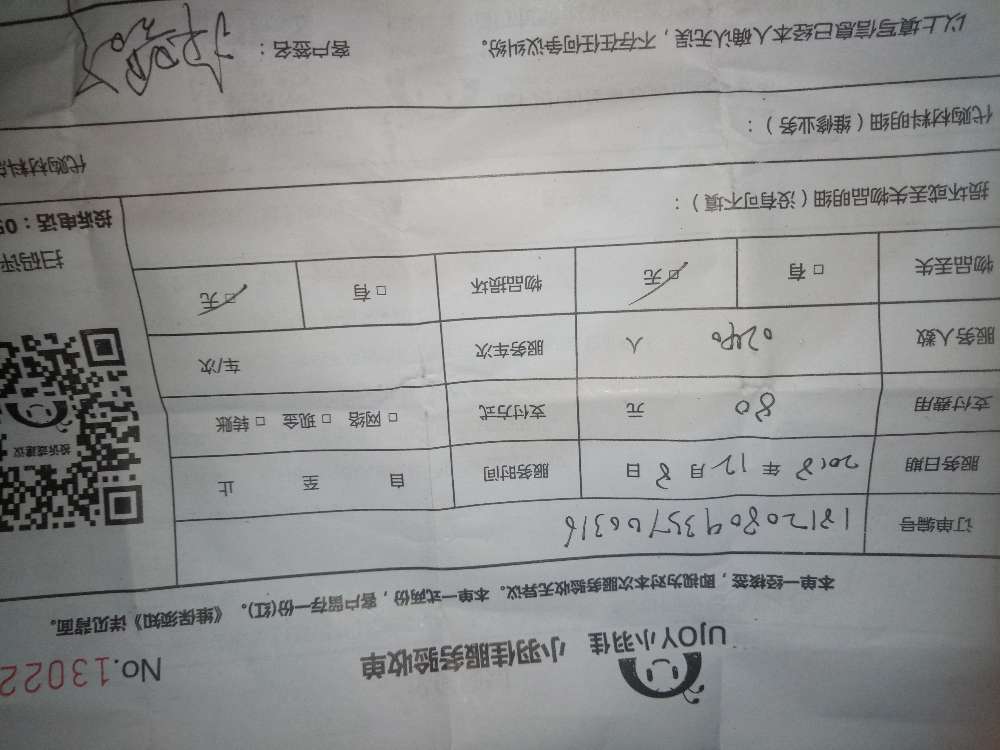 UJOY小羽佳 小羽佳服务验收单 No.13022
本单一经核签，即视为对本次服务验收无异议。本单一式两份，客户留存一份(红)。《维保须知》详见背面。
订单编号
服务日期 2018 年 12 月 8 日 服务时间 自 至 止
支付费用 80 元 支付方式 □ 网络 □ 现金 □ 转账
投诉或建议
服务人数 人 服务车次 车/次
物品丢失 □ 有 □ 无 物品损坏 □ 有 □ 无
扫码评
投诉电话：05
损坏或丢失物品明细（没有可不填）：
代购材料
代购材料明细（维修业务）：
以上填写信息已经本人确认无误，不存在任何争议纠纷。 客户签名：